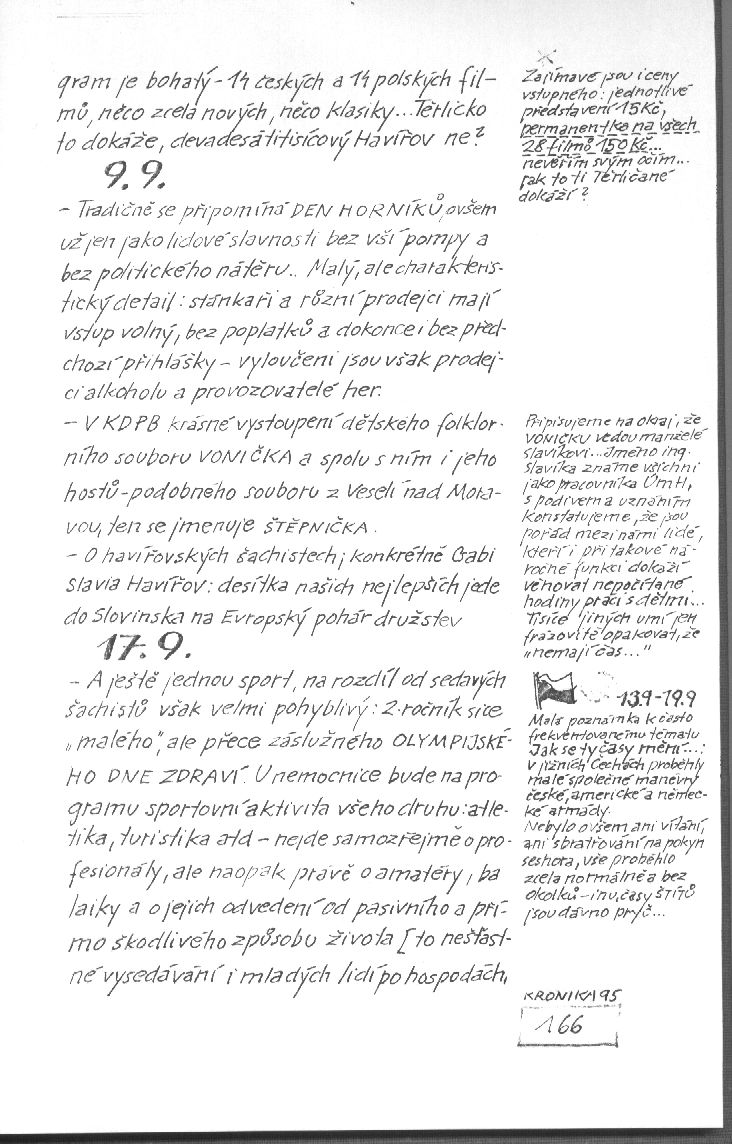 gram je bohatý - 14 českých a 14 polských fil-
mů, něco zcela nových, něco klasiky... Těrlicko
to dokáže, devadesátitisícový Havířov ne?
9. 9.
- Tradičně se připomíná DEN HORNÍKŮ, ovšem
už jen jako lidové slavnosti bez vší pompy a
bez politického nátěru.. Malý, ale charakteris-
tický detail: stánkaři a různí prodejci mají
vstup volný, bez poplatků a dokonce i bez před-
chozí přihlášky - vyloučeni jsou však prodej-
ci alkoholu a provozovatelé her.
- V KDPB krásné vystoupení dětského folklor-
ního souboru VONIČKA a spolu s ním i jeho
hostů - podobného souboru z Veselí nad Mora-
vou, ten se jmenuje ŠTĚPNIČKA.
- O havířovských šachistech, konkrétně Gabi
Slavia Havířov: desítka našich nejlepších jede
do Slovinska na Evropský pohár družstev
17. 9.
- A ještě jednou sport, na rozdíl od sedavých
šachistů však velmi pohyblivý: 2. ročník sice
„malého", ale přece záslužného OLYMPIJSKÉ-
HO DNE ZDRAVÍ. U nemocnice bude na pro-
gramu sportovní aktivita všeho druhu: atle-
tika, turistika atd - nejde samozřejmě o pro-
fesionály, ale naopak právě o amatéry, ba
laiky a o jejich odvedení od pasivního a pří-
mo škodlivého způsobu života [to nešťast-
né vysedávání i mladých lidí po hospodách,
Zajímavé jsou i ceny
vstupného: jednotlivé
představení 15Kč,
permanentka na všech
28 filmů 150 Kč...
nevěřím svým očím...
Jak to ti Těrličané
dokáží?
Připisujeme na okraj, že
VONIČKU vedou manželé
Slavíkovi... Jméno ing.
Slavíka známe všichni
jako pracovníka ÚmH,
s podivem a uznáním
konstatujeme, že jsou
pořád mezi námi lidé,
kteří i při takové ná-
ročné funkci dokáží
věnovat nepočítané
hodiny práci s dětmi...
Tisíce jiných umí jen
frázovitě opakovat, že
„nemají čas..."
13.9-19.9
Malá poznámka k často
frekventovanému tématu
Jak se ty časy mění...:
v jižních Čechách proběhly
malé společné manévry
české, americké a němec-
ké armády.
Nebylo ovšem ani vítání,
ani sbratřování na pokyn
seshora, vše proběhlo
zcela normálně a bez
okolků - inu, časy ŠTÍTŮ
jsou dávno pryč...
KRONIKA 95
166